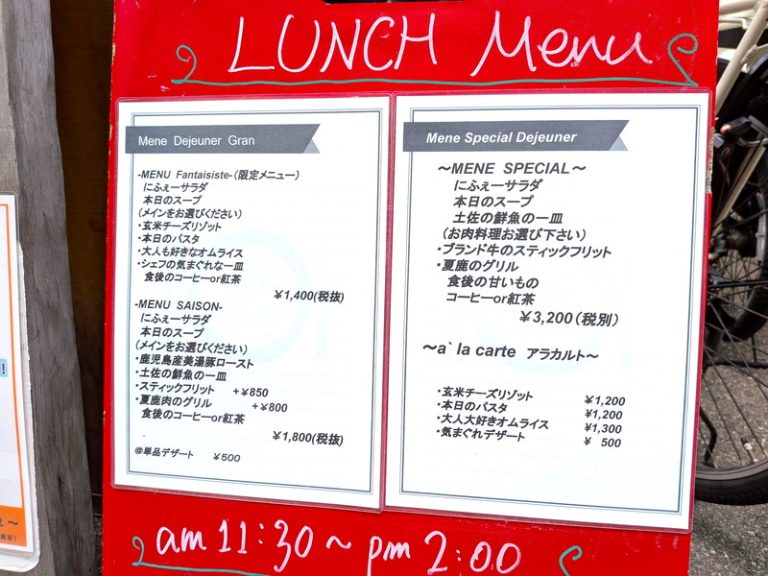 LUNCH Menu
Mene Dejeuner Gran
-MENU Fantaisiste-(限定メニュー)
にふぇーサラダ
本日のスープ
(メインをお選びください)
・玄米チーズリゾット
・本日のパスタ
・大人も好きなオムライス
・シェフの気まぐれな一皿
食後のコーヒーor紅茶
¥1,400(税抜)
-MENU SAISON-
にふぇーサラダ
本日のスープ
(メインをお選びください)
・鹿児島産美湯豚ロースト
・土佐の鮮魚の一皿
・スティックフリット +¥850
・夏鹿肉のグリル +¥800
食後のコーヒーor紅茶
¥1,800(税抜)
@単品デザート ¥500
Mene Special Dejeuner
～MENE SPECIAL～
にふぇーサラダ
本日のスープ
土佐の鮮魚の一皿
(お肉料理お選び下さい)
・ブランド牛のスティックフリット
・夏鹿のグリル
食後の甘いもの
コーヒーor紅茶
¥3,200(税別)
～a` la carte アラカルト～
・玄米チーズリゾット ¥1,200
・本日のパスタ ¥1,200
・大人大好きオムライス ¥1,300
・気まぐれデザート ¥ 500
am 11:30～pm 2:00